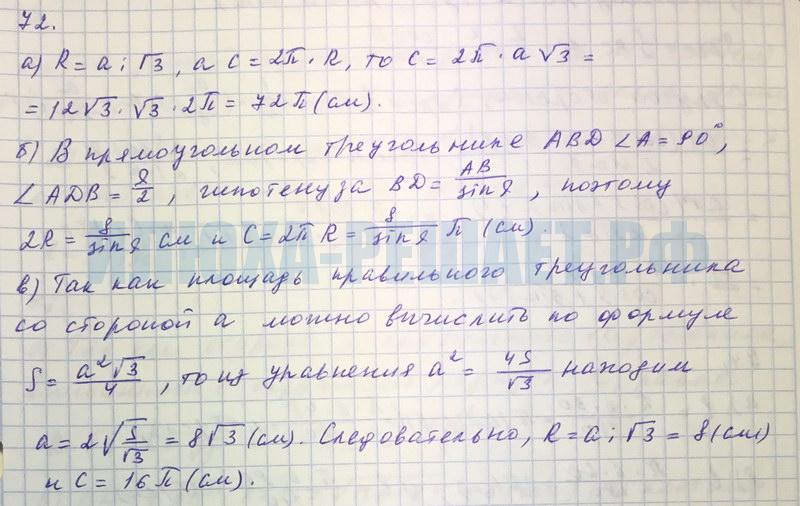 72.
а) R = a : √3, а C = 2π · R, то C = 2π · a √3 =
= 12√3 · √3 · 2π = 72π (см).
б) В прямоугольном треугольнике ABD ∠A = 90°,
∠ADB = α/2, гипотенуза BD = AB/sin α, поэтому
2R = 8/sin α см и C = 2π R = 8/sin α π (см).
ИЛЮХА-РЕШАЕТ.РФ
в) Так как площадь правильного треугольника
со стороной a можно вычислить по формуле
S = a²√3/4, то из уравнения a² = 4S/√3 находим
a = 2√(S/√3) = 8√3 (см). Следовательно, R = a : √3 = 8 (см)
и C = 16π (см).